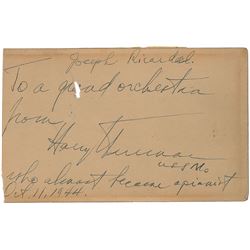 Joseph Ricardel.
To a good orchestra
from;
Harry Truman
U.S.S. Mo.
who almost became a pianist
Oct. 11, 1944.